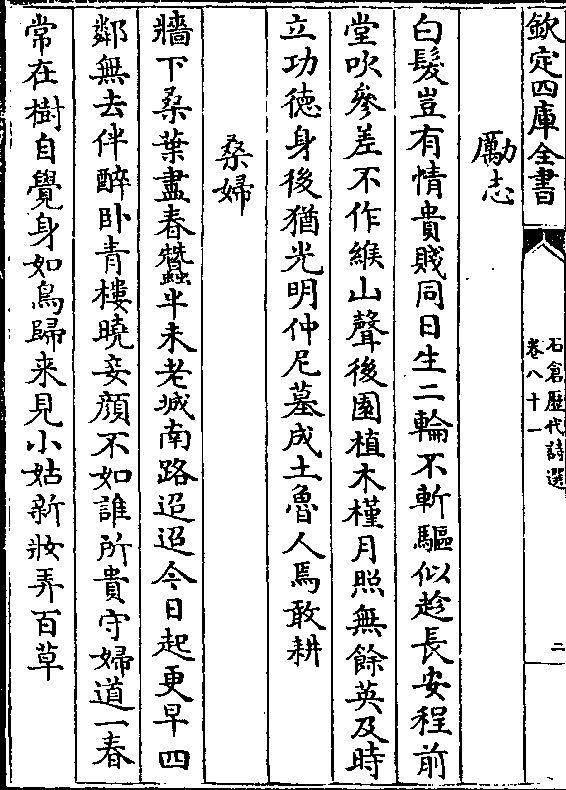 欽定四庫全書
石倉歷代詩選
卷八十一
二
勵志
白髮豈有情貴賤同日生二輪不暫驅似趁長安程前
堂吹參差不作緱山聲後園植木槿月照無餘英及時
立功德身後猶光明仲尼墓成土魯人焉敢耕
桑婦
牆下桑葉盡春蠶半未老城南路迢迢今日起更早四
鄰無去伴醉臥青樓曉妾顏不如誰所貴守婦道一春
常在樹自覺身如鳥歸来見小姑新妝弄百草